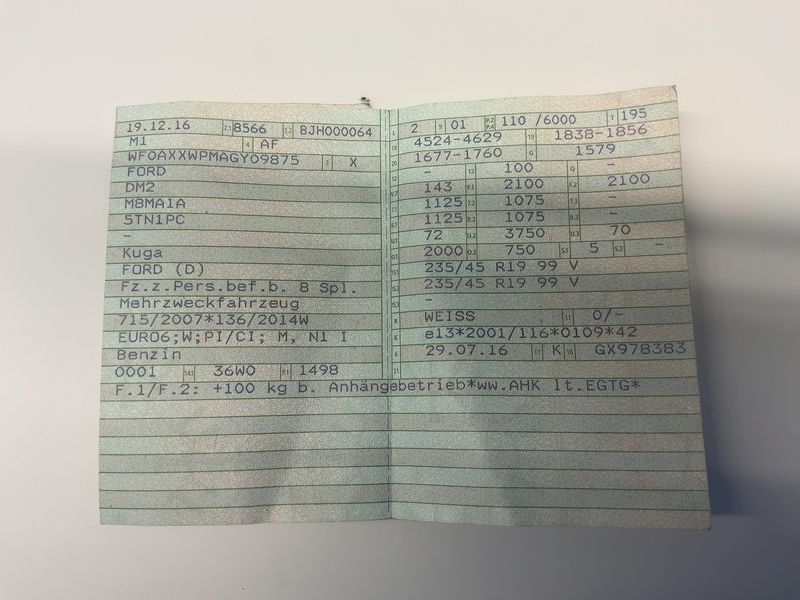 19.12.16 2.1 8566 2.2 BJH000064
M1 4 AF
WF0AXXWPMAGY09875 3 X
FORD
DM2
M8MA1A
5TN1PC
-
Kuga
FORD (D)
Fz.z.Pers.bef.b. 8 Spl.
Mehrzweckfahrzeug
715/2007*136/2014W
EURO6;W;PI/CI; M, N1 I
Benzin
0001 14.1 36W0 P.1 1498
F.1/F.2: +100 kg b. Anhängebetrieb*ww.AHK lt.EGTG*
L 2 9 01 P.2 P.4 110 /6000 T 195
18 4524-4629 19 1838-1856
20 1677-1760 G 1579
- 13 100 Q -
143 F.1 2100 F.2 2100
1125 7.2 1075 7.3 -
1125 8.2 1075 8.3 -
72 U.2 3750 U.3 70
2000 O.2 750 S.1 5 S.2 -
235/45 R19 99 V
235/45 R19 99 V
-
R WEISS 11 0/-
K e13*2001/116*0109*42
6 29.07.16 17 K 16 GX978383
21